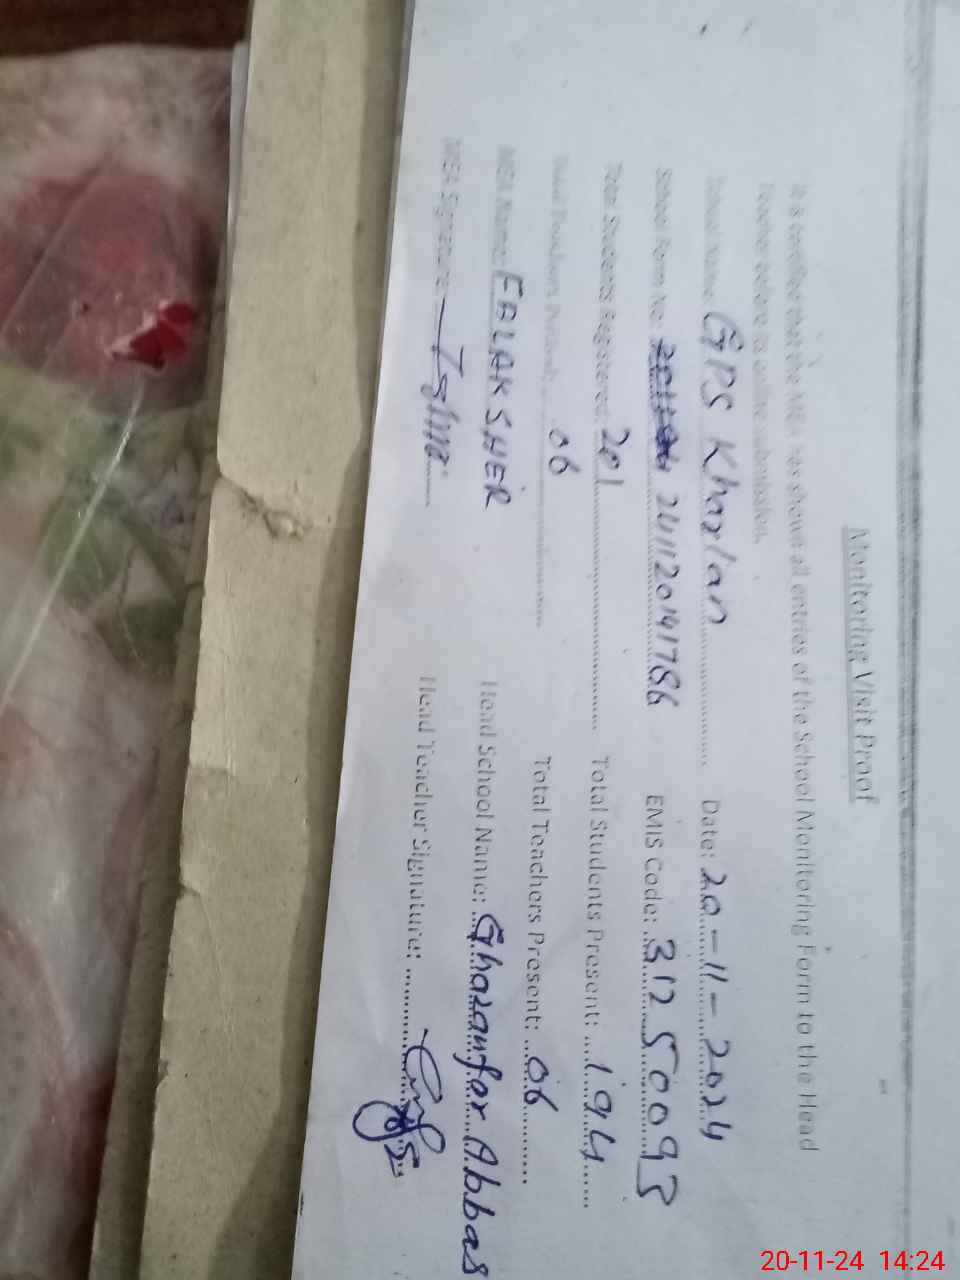 Monitoring Visit Proof
It is certified that the MEA has shown all entries of the School Monitoring Form to the Head
Teacher before its online submission.
School Name: GPS Kharlan Date: 20-11-2024
School Form No: 241120141786 EMIS Code: 31250093
Total Students Registered: 201 Total Students Present: 194
Total Teachers Posted: 06 Total Teachers Present: 06
MEA Name: FALAK SHER Head School Name: Ghazanfar Abbas
MEA Signature: Head Teacher Signature:
20-11-24 14:24